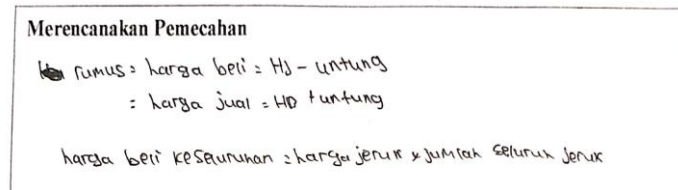 Merencanakan Pemecahan
rumus = harga beli = HJ - untung
= harga jual = HB + untung
harga beli keseluruhan = harga jeruk x jumlah seluruh jeruk